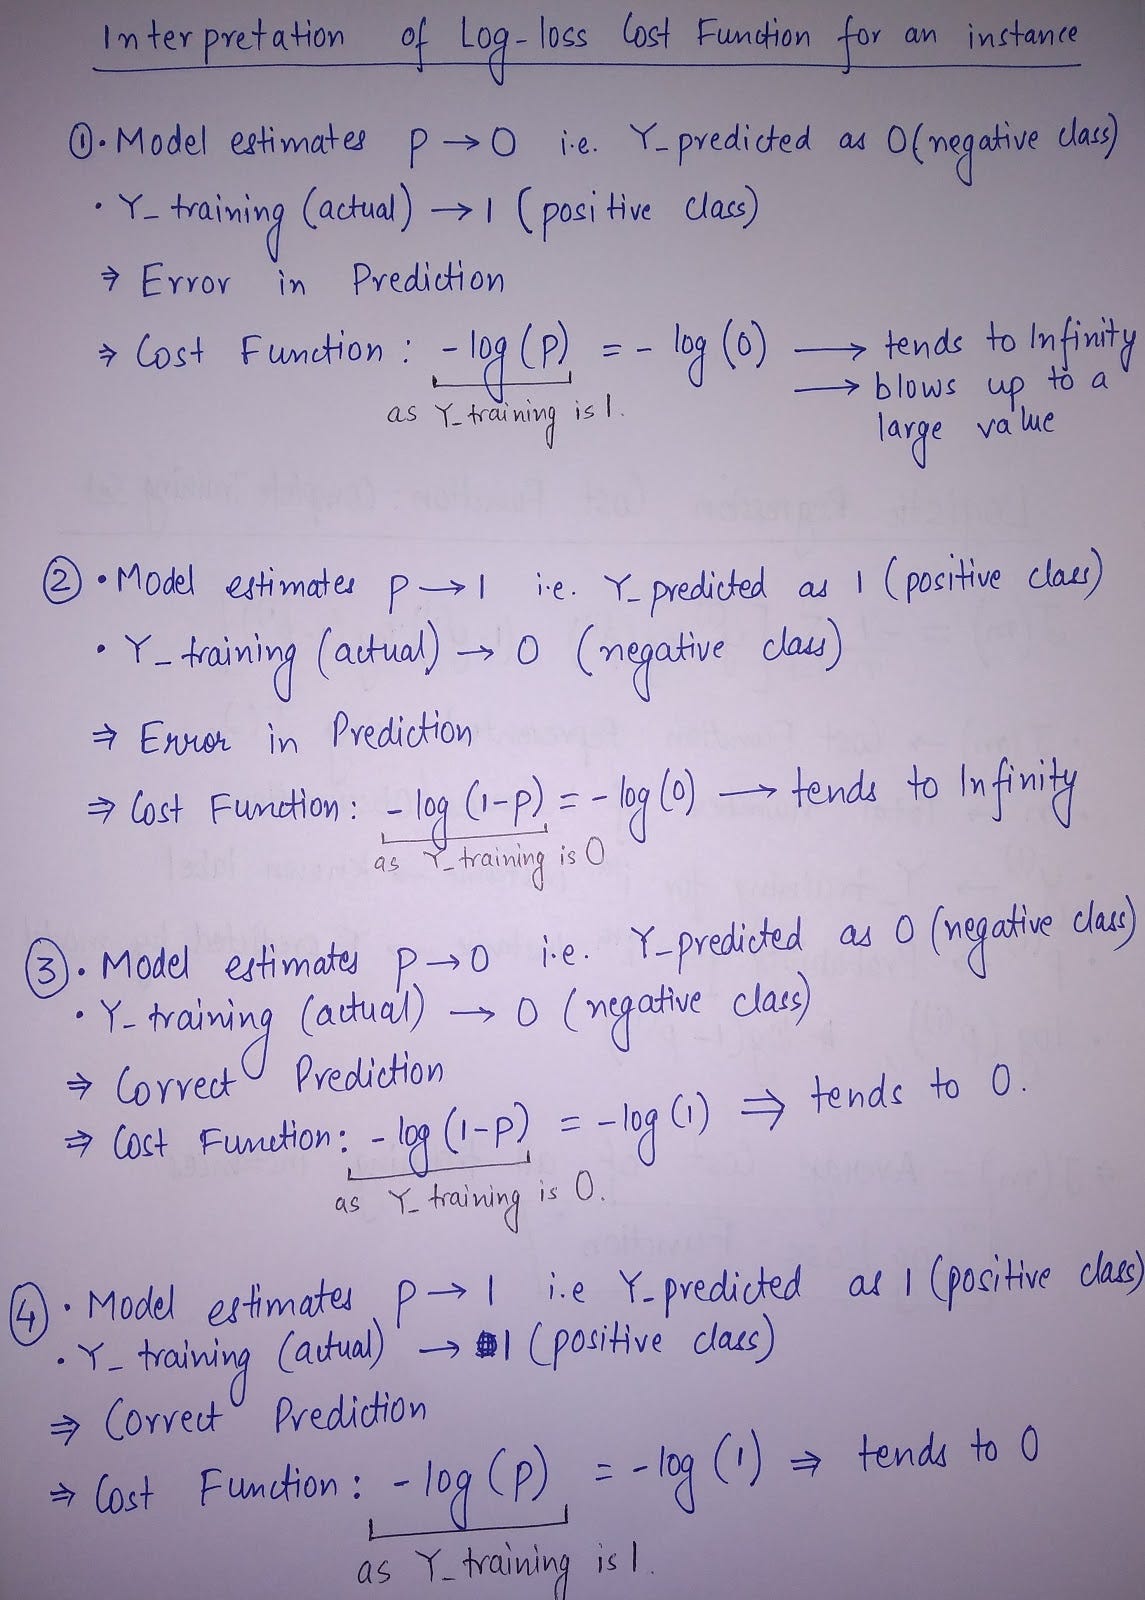 Interpretation of Log-loss Cost Function for an instance
①• Model estimates P → 0 i.e. Y_predicted as 0 (negative class)
• Y_training (actual) → 1 (positive class)
⇒ Error in Prediction
⇒ Cost Function : -log(P) = - log (0) → tends to Infinity
→ blows up to a
large value
as Y_training is 1.
② • Model estimates P → 1 i.e. Y_predicted as 1 (positive class)
• Y_training (actual) → 0 (negative class)
⇒ Error in Prediction
⇒ Cost Function: -log (1-P) = -log(0) → tends to Infinity
as Y_training is 0
③• Model estimates P → 0 i.e. Y_predicted as 0 (negative class)
• Y_training (actual) → 0 (negative class)
⇒ Correct Prediction
⇒ Cost Function: -log (1-P) = -log (1) ⇒ tends to 0.
as Y_training is 0.
④ • Model estimates P → 1 i.e Y_predicted as 1 (positive class)
• Y_training (actual) → 1 (positive class)
⇒ Correct Prediction
⇒ Cost Function : -log (P) = -log (1) ⇒ tends to 0
as Y_training is 1.